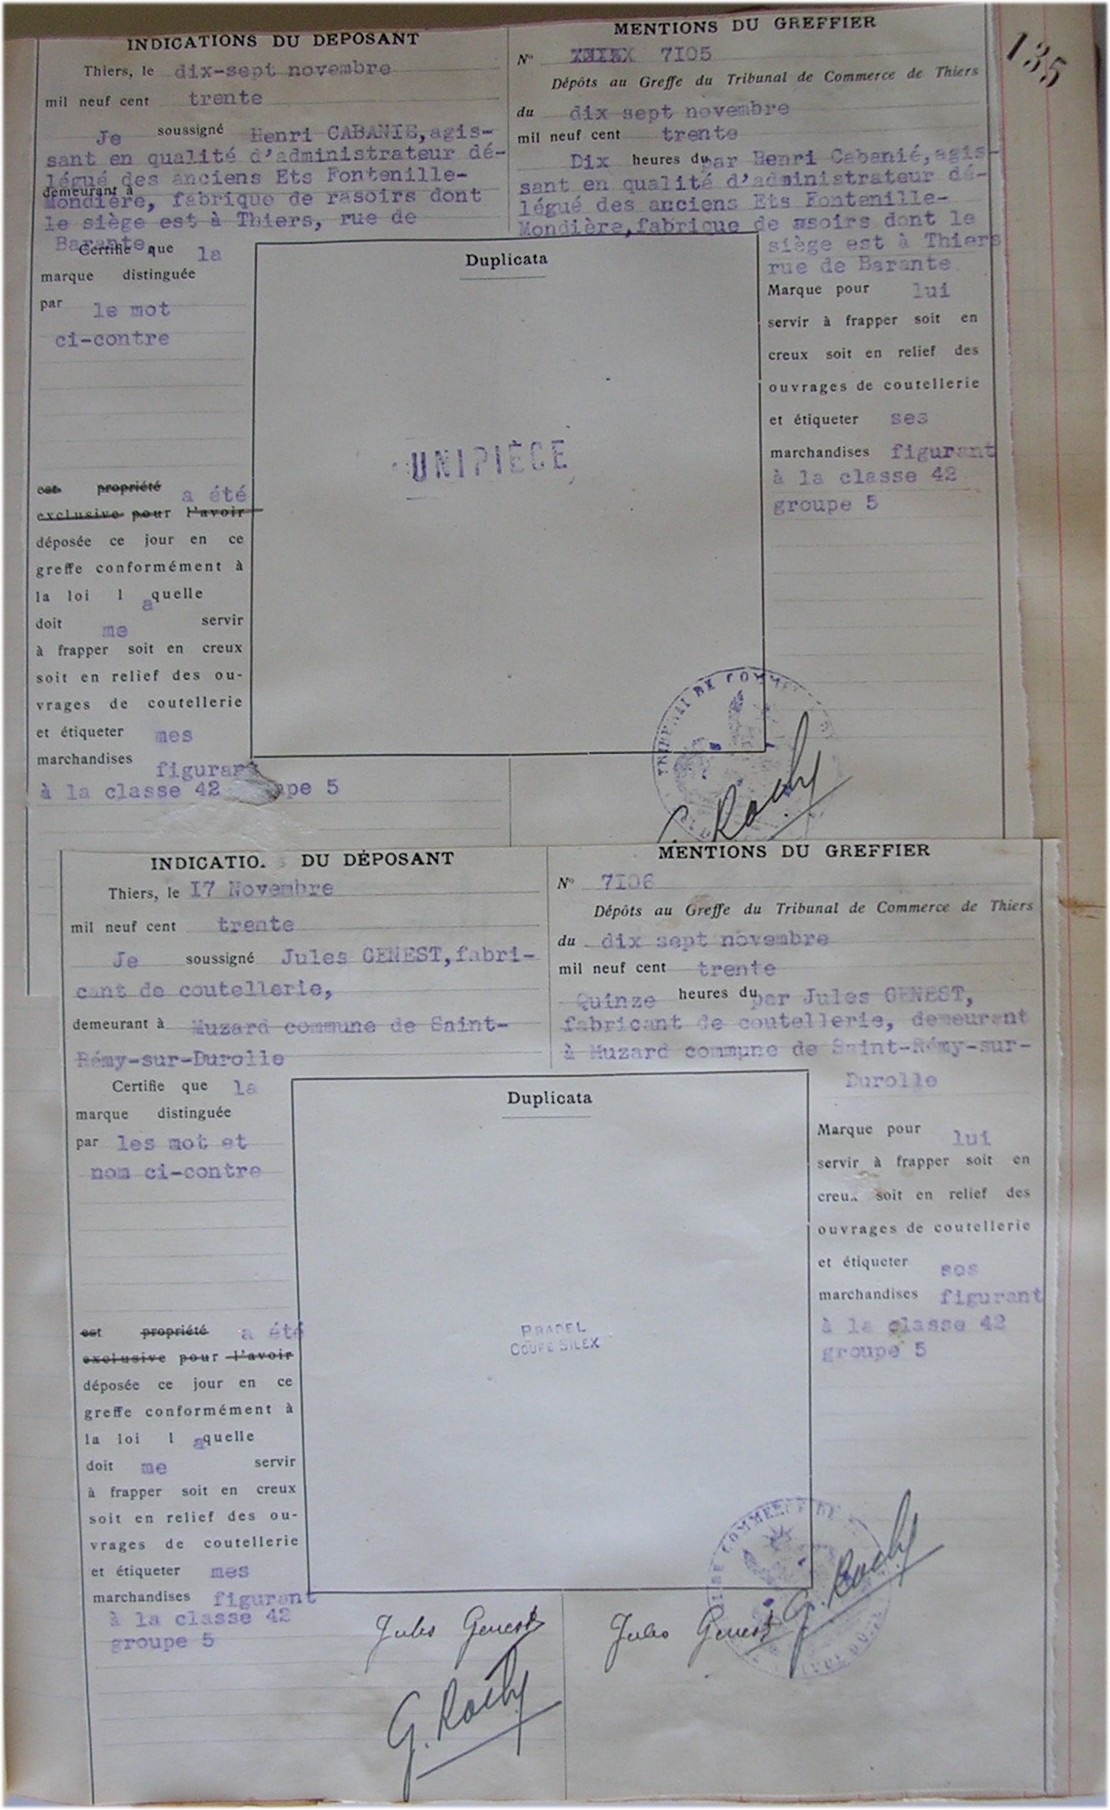 135
INDICATIONS DU DEPOSANT
Thiers, le dix-sept novembre
mil neuf cent trente
Je soussigné Henri CABANIE, agis-
sant en qualité d'administrateur dé-
légué des anciens Ets Fontenille-
demeurant à
Mondière, fabrique de rasoirs dont
le siège est à Thiers, rue de
Barante,
Certifie que la
marque distinguée
par le mot
ci-contre
est propriété a été
exclusive pour l'avoir
déposée ce jour en ce
greffe conformément à
la loi laquelle
doit me servir
à frapper soit en creux
soit en relief des ou-
vrages de coutellerie
et étiqueter mes
marchandises figurant
à la classe 42 pe 5
Duplicata
UNIPIÈCE
MENTIONS DU GREFFIER
No 7I05
Dépôts au Greffe du Tribunal de Commerce de Thiers
du dix sept novembre
mil neuf cent trente
Dix heures du par Henri Cabanié, agis-
sant en qualité d'administrateur dé-
légué des anciens Ets Fontenille-
Mondière, fabrique de asoirs dont le
siège est à Thiers
rue de Barante
Marque pour lui
servir à frapper soit en
creux soit en relief des
ouvrages de coutellerie
et étiqueter ses
marchandises figurant
à la classe 42
groupe 5
DE COMME
G. Rochy
INDICATIO. S DU DÉPOSANT
Thiers, le I7 Novembre
mil neuf cent trente
Je soussigné Jules GENEST, fabri-
cant de coutellerie,
demeurant à Muzard commune de Saint-
Rémy-sur-Durolle
Certifie que la
marque distinguée
par les mot et
nom ci-contre
est propriété a été
exclusive pour l'avoir
déposée ce jour en ce
greffe conformément à
la loi laquelle
doit me servir
à frapper soit en creux
soit en relief des ou-
vrages de coutellerie
et étiqueter mes
marchandises figurant
à la classe 42
groupe 5
Duplicata
PRADEL
COUPE SILEX
MENTIONS DU GREFFIER
No 7I06
Dépôts au Greffe du Tribunal de Commerce de Thiers
du dix sept novembre
mil neuf cent trente
Quinze heures du par Jules GENEST,
fabricant de coutellerie, demeurant
à Muzard commune de Saint-Rémy-sur-
Durolle
Marque pour lui
servir à frapper soit en
creux soit en relief des
ouvrages de coutellerie
et étiqueter ses
marchandises figurant
à la classe 42
groupe 5
COMMERCE DE
Jules Genest
G. Rochy
Jules Genest
G. Rochy